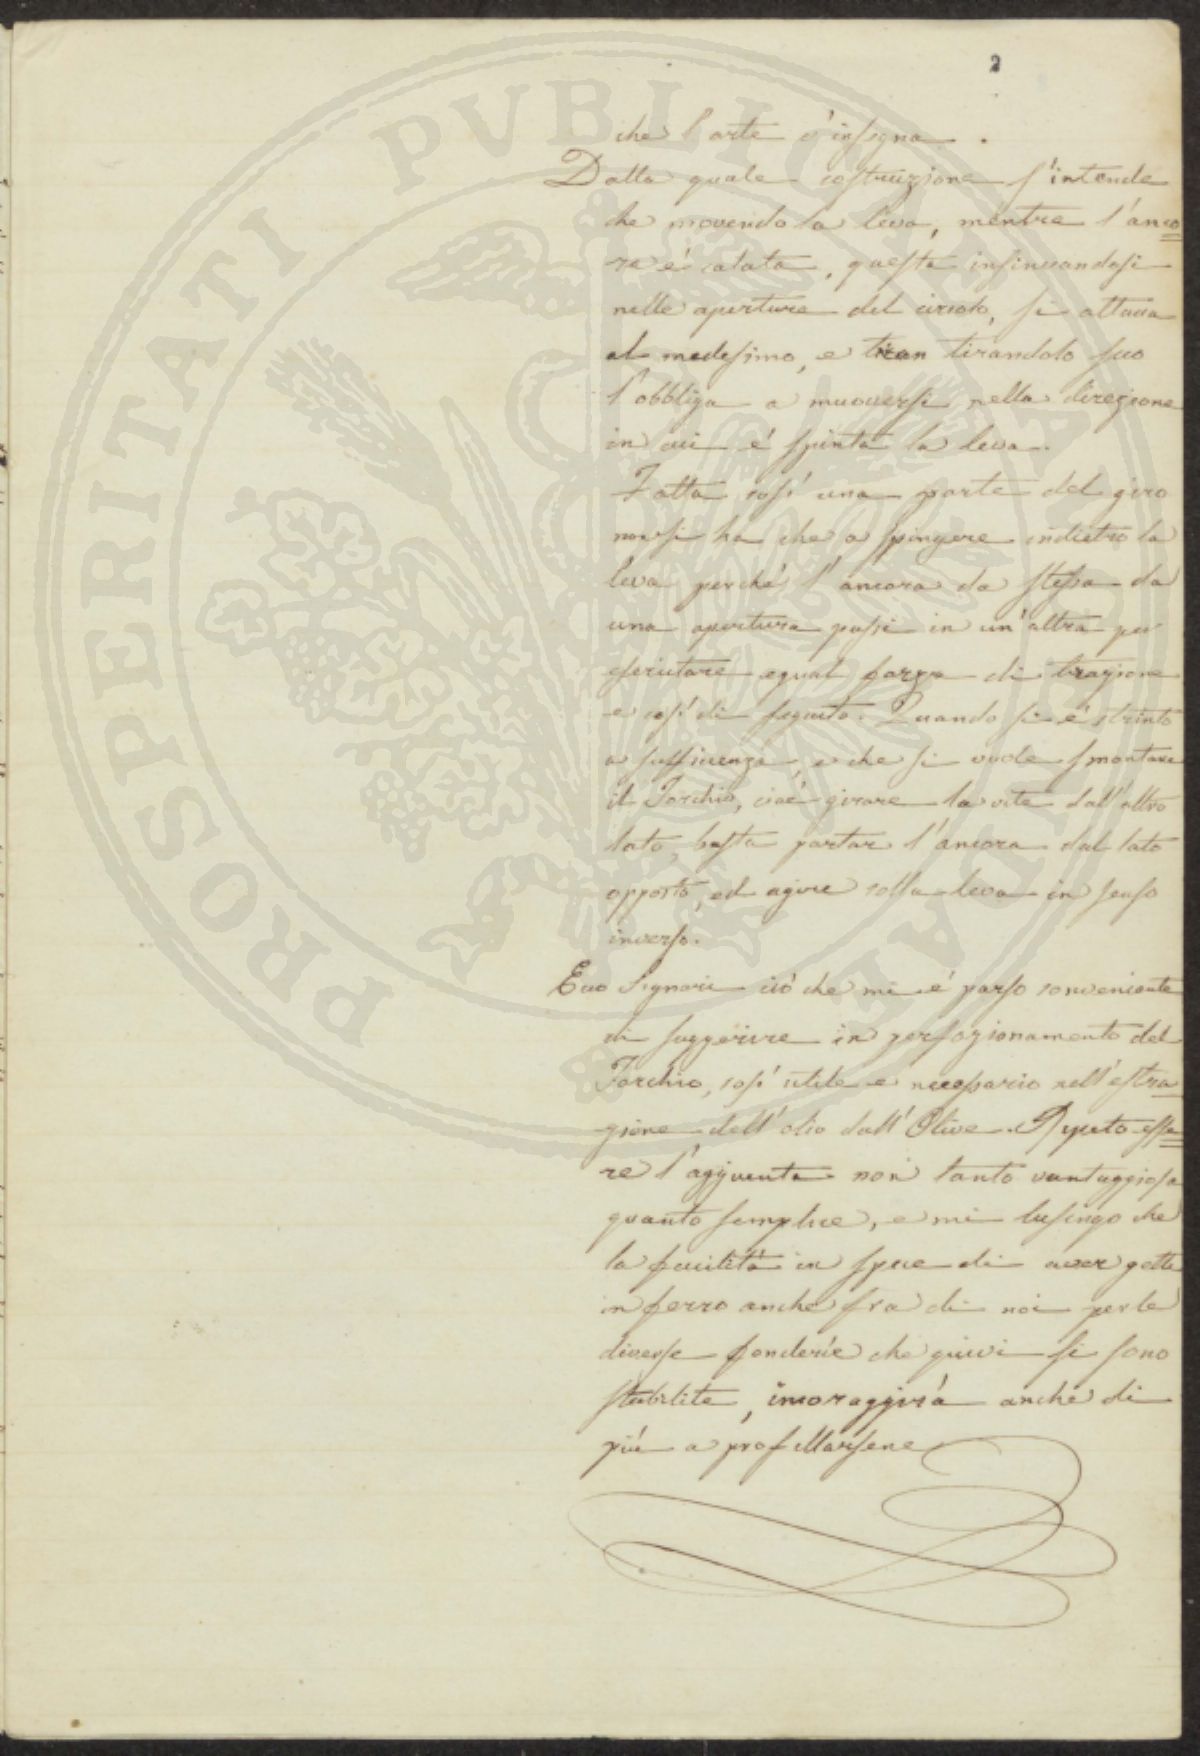 2
che l'arte c'insegna.
Dalla quale costruzione s'intende
che movendo la leva, mentre l'anco
ra è calata, questa insinuandosi
nelle aperture del circolo, si attacca
al medesimo, e tiran tirandolo seco
l'obbliga a muoversi nella direzione
in cui è spinta la leva.
Fatta così una parte del giro
non si ha che a spingere indietro la
leva perché l'ancora da stessa da
una apertura passi in un'altra per
esercitare egual forza di trazione
e così di seguito. Quando si è strinto
a sufficienza, e che si vuole smontare
il Torchio, cioè girare la vite dall'altro
lato, basta portar l'ancora dal lato
opposto, ed agire colla leva in senso
inverso.
Ecco Signori ciò che mi è parso conveniente
di suggerire in perfezionamento del
Torchio, così utile e necessario nell'estra
zione dell'olio dall'Olive. Reputo esse
re l'aggiunta non tanto vantaggiosa
quanto semplice, e mi lusingo che
la facilità in specie di aver getti
in ferro anche fra di noi per le
diverse fonderie che quivi si sono
stabilite, incoraggirà anche di
più a profittarsene
PROSPERITATI PVBLICAE